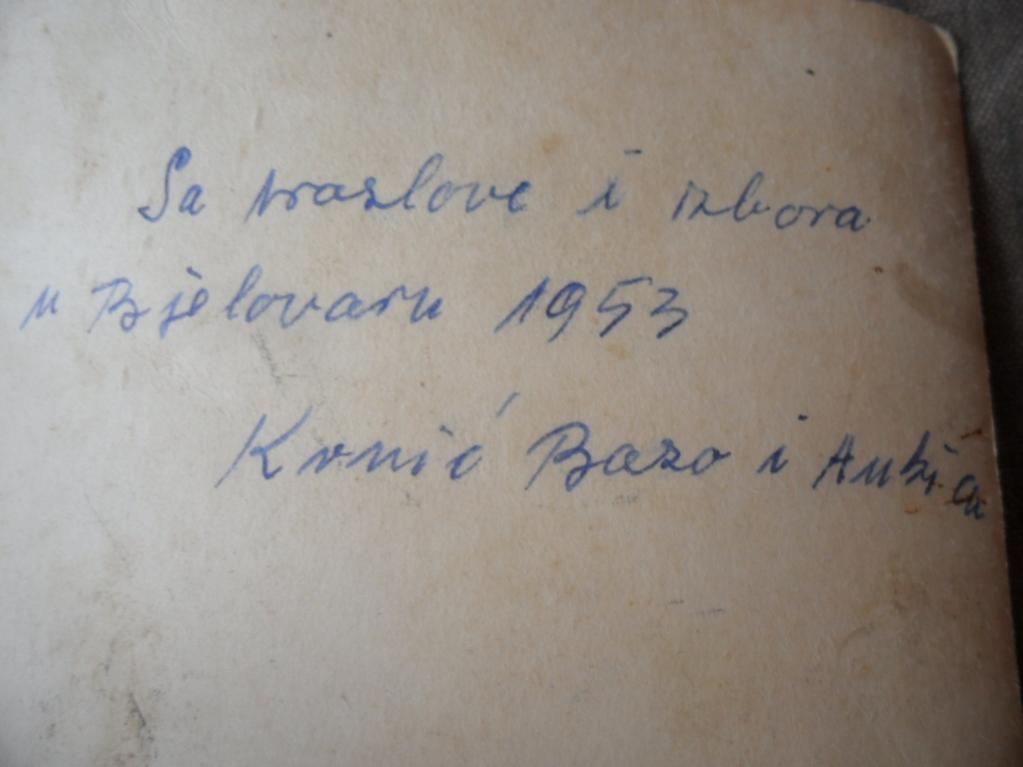 Sa proslove i izbora
u Bjelovaru 1953
Krnić Bozo i Ankica